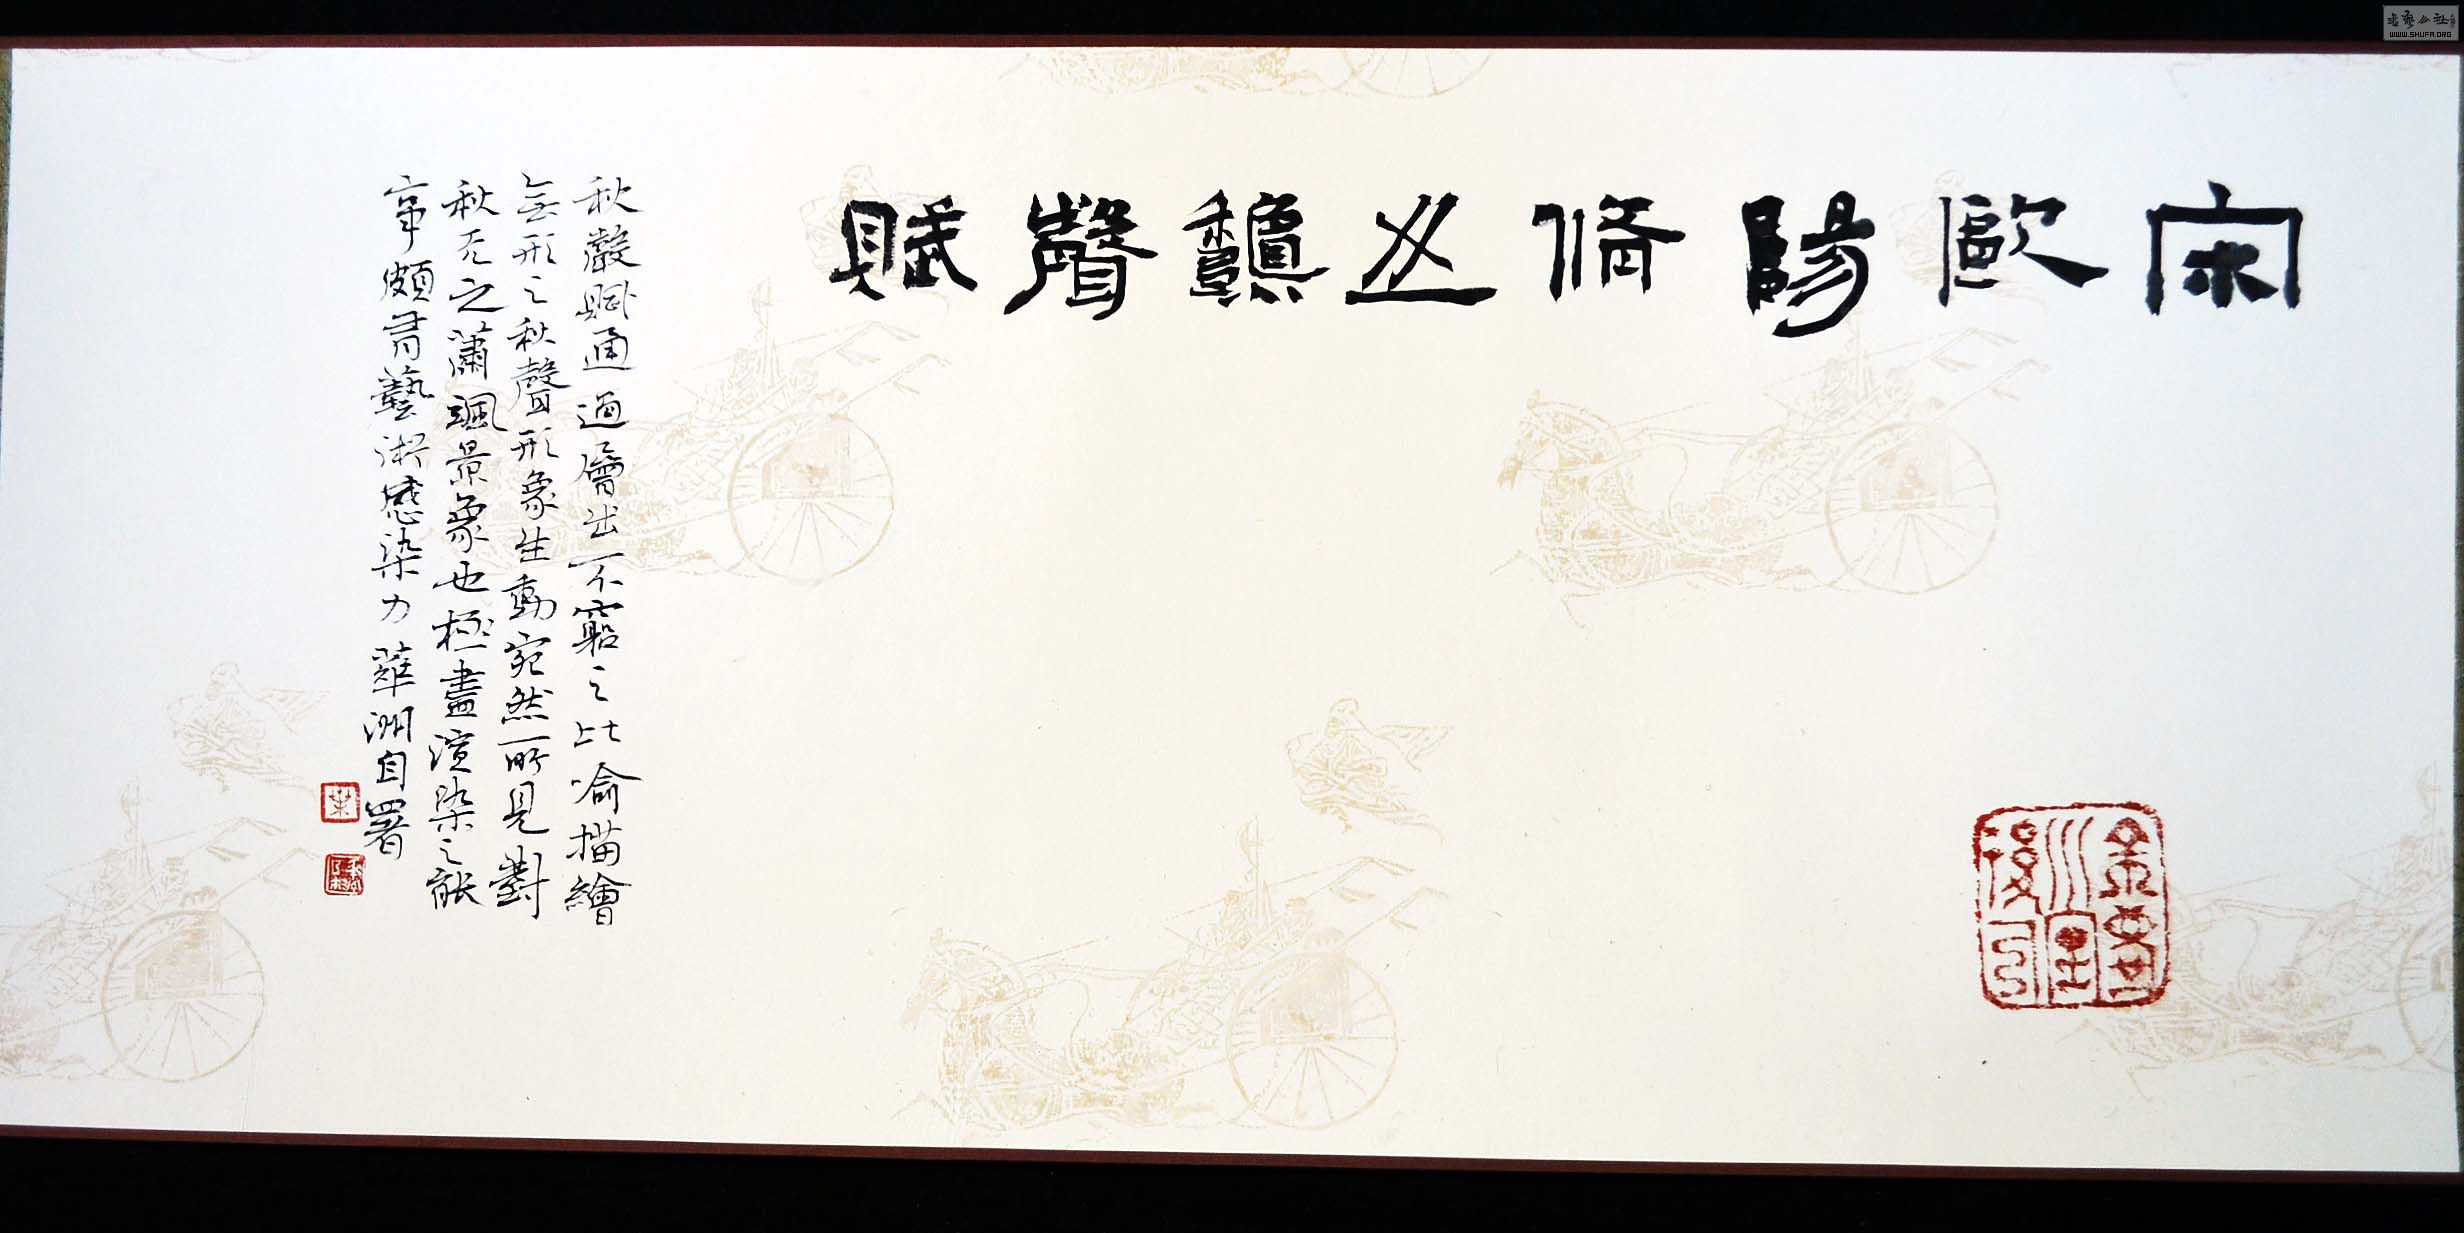 宋歐陽脩之龝聲賦
秋聲賦通過層出不窮之比喻描繪
無形之秋聲形象生動宛然所見對
秋天之蕭颯景象也極盡渲染之能
事頗有藝術感染力華洲自署
書藝公社
WWW.SHUFA.ORG